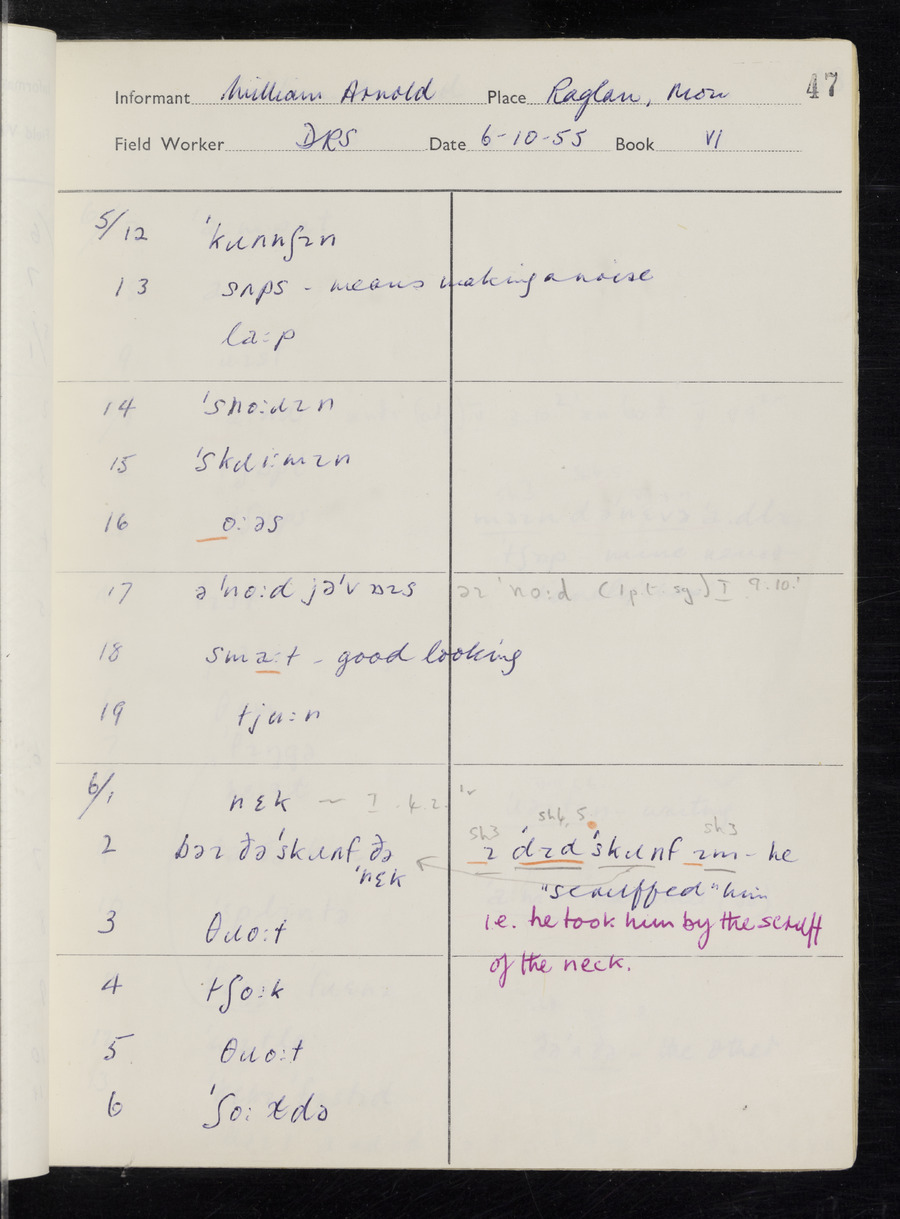 47
Informant William Arnold Place Raglan, Mon
Field Worker DRS Date 6-10-55 Book VI
5/12 ˈkɹʌnʃɪn
13 sʌps - means making a noise
la:p
14 ˈsno:dɪn
15 ˈskɹi:mɪn
16 o:əs
17 ə ˈno:d jəˈvɒɪs əɪ ˈno:d (1p.t. sg.) I 9.10.
18 sma:t - good looking
19 tju:n
6/1 nɛk ~ I. 4. 2.
2 bəɪ ðə ˈskɹʌf ðə
ˈnɛk
sh3 sh4, 5. sh3
ɪ ˈdɪd ˈskɹʌf ɪm - he
"scruffed" him
i.e. he took him by the scruff
of the neck.
3 θɹo:t
4 tʃo:k
5 θɹo:t
6 ˈʃo:ɫdə